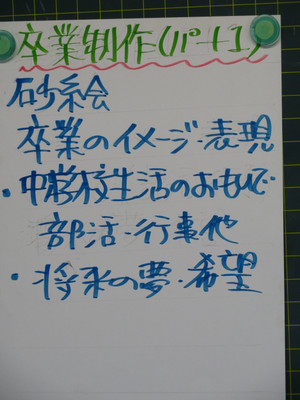 卒業制作(パート1)
砂絵
卒業のイメージ・表現
・中学校生活のおもいで
部活・行事他
・将来の夢・希望